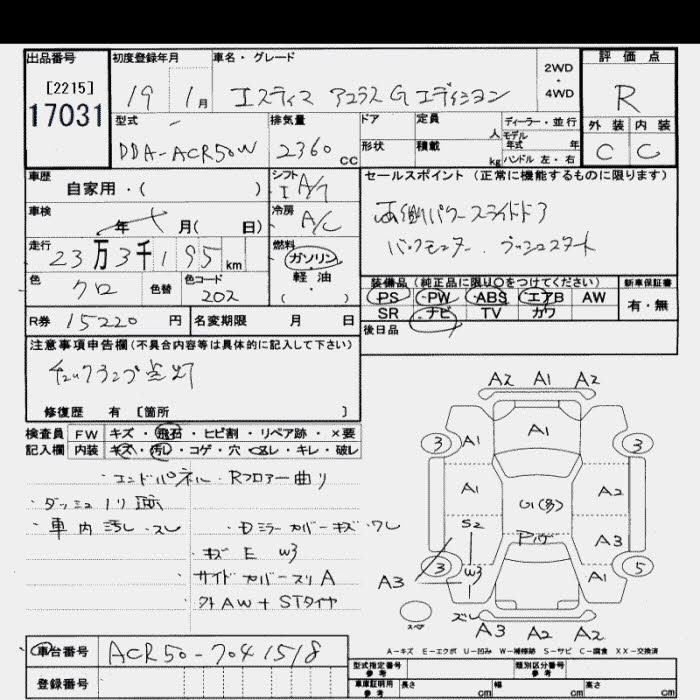 出品番号 初度登録年月 車名・グレード 2WD・4WD 評価点
[2215]
17031 19 1月 エスティマ アエラス G エディション R
型式 排気量 ドア 定員 人 ディーラー・並行 外装 内装
DDA-ACR50W 2360 CC 形状 積載 kg モデル年式 年 ハンドル 左・右 C C
車歴 シフト セールスポイント(正常に機能するものに限ります)
自家用・( ) I A/T
車検 冷房 両側パワースライドドア
年 月( 日) A/C バックモニター. プッシュスタート
走行 燃料
23万3千195km ガソリン・軽油・( )
色 色替 色コード 装備品(純正品に限り○をつけてください) 新車保証書
クロ 202 PS ・PW ・ABS ・エアB AW 有・無
R券 15220円 名変期限 月 日 SR ・ナビ TV カワ
後日品
注意事項申告欄(不具合内容等は具体的に記入して下さい)
チェックランプ点灯
修復歴 有 [箇所 ]
検査員 FW キズ・飛石・ヒビ割・リペア跡・×要
記入欄 内装 キズ・汚れ・コゲ・穴・スレ・キレ・破レ
・エンドパネル・Rフロアー曲り
・ダッシュ
・車内汚レ・スレ
・Dミラーカバーキズ・ワレ
・キズ E W3
サイドカバースリA
・外AW+STタイヤ
A2 A1 A2
3 A1 A1 3
A1 U1(多) A2
S2 A3
3 W3 A1 5
A3
スペア スレ
A3 A2 A2
A-キズ E-エクボ U-凹み W-補修跡 S-サビ C-腐食 XX-交換済
車台番号 ACR50-7041518
登録番号
型式指定番号 参考 類別区分番号 参考
車庫証明用 参考 長さ cm 幅 cm 高さ cm